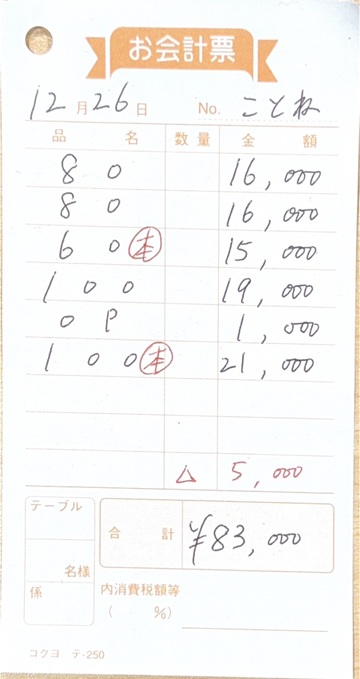 お会計票
12月26日 No. ことね
品名 数量 金額
80 16,000
80 16,000
60 本 15,000
100 19,000
OP 1,000
100 本 21,000
△ 5,000
テーブル
名様
合計 ¥83,000
係
内消費税額等
( %)
コクヨ テ-250